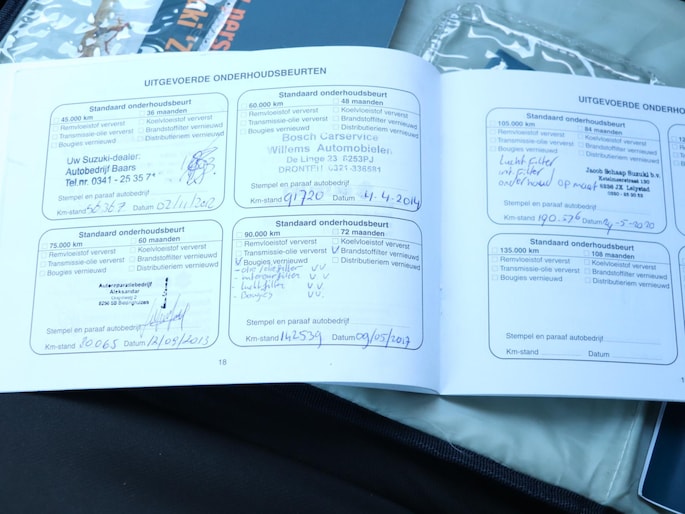 UITGEVOERDE ONDERHOUDSBEURTEN
Standaard onderhoudsbeurt
45.000 km 36 maanden
Remvloeistof ververst Koelvloeistof ververst
Transmissie-olie ververst Brandstoffilter vernieuwd
Bougies vernieuwd Distributieriem vernieuwd
Uw Suzuki-dealer:
Autobedrijf Baars
Tel.nr. 0341 - 25 35 71
Stempel en paraaf autobedrijf
Km-stand 56367 Datum 02/11/2012
Standaard onderhoudsbeurt
60.000 km 48 maanden
Remvloeistof ververst Koelvloeistof ververst
Transmissie-olie ververst Brandstoffilter vernieuwd
Bougies vernieuwd Distributieriem vernieuwd
Bosch Carservice
Willems Automobielen
De Linge 23 8253PJ
DRONTEN 0321-336581
Stempel en paraaf autobedrijf
Km-stand 91720 Datum 4-2014
Standaard onderhoudsbeurt
75.000 km 60 maanden
Remvloeistof ververst Koelvloeistof ververst
Transmissie-olie ververst Brandstoffilter vernieuwd
Bougies vernieuwd Distributieriem vernieuwd
Autoreparatiebedrijf
8256 SB Biddinghuizen
Stempel en paraaf autobedrijf
Km-stand 80065 Datum 12/09/2013
Standaard onderhoudsbeurt
90.000 km 72 maanden
Remvloeistof ververst Koelvloeistof ververst
Transmissie-olie ververst V Brandstoffilter vernieuwd
V Bougies vernieuwd Distributieriem vernieuwd
- olie/oliefilter V V
- interieurfilter V V
- luchtfilter V V
- Bougies V V
Stempel en paraaf autobedrijf
Km-stand 142539 Datum 09/05/2017
18
UITGEVOERDE ONDERHO
Standaard onderhoudsbeurt
105.000 km 84 maanden
Remvloeistof ververst Koelvloeistof ververst
Transmissie-olie ververst Brandstoffilter vernieuwd
Bougies vernieuwd Distributieriem vernieuwd
Lucht filter
int. filter
onderhoud op maat
Jacob Schaap Suzuki b.v.
8226 JX Lelystad
Stempel en paraaf autobedrijf
Km-stand 190.576 Datum -5-2020
Standaard onderhoudsbeurt
135.000 km 108 maanden
Remvloeistof ververst Koelvloeistof ververst
Transmissie-olie ververst Brandstoffilter vernieuwd
Bougies vernieuwd Distributieriem vernieuwd
Stempel en paraaf autobedrijf
Km-stand Datum